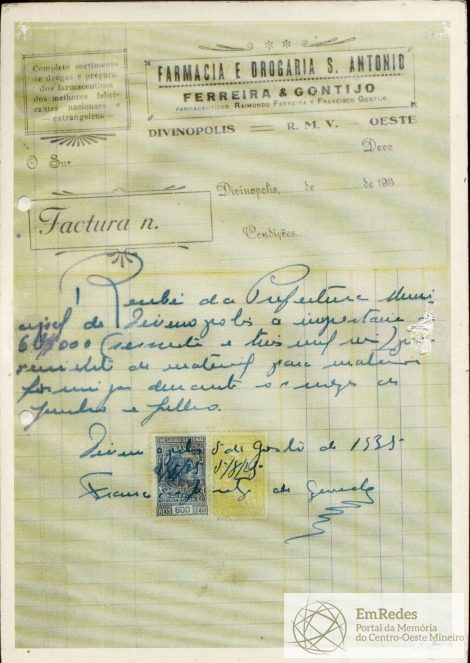 Completo sortimento
de drogas e prepara-
dos farmaceuticos
dos melhores fabri-
cantes nacionaes e
extrangeiros
FARMACIA E DROGARIA S. ANTONIO
FERREIRA & GONTIJO
FARMACEUTICOS: RAIMUNDO FERREIRA E FRANCISCO GONTIJO
DIVINOPOLIS R. M. V. OESTE
Snr.
Deve
Divinopolis, de de 193
Factura n.
Condições
Recebi da Prefeitura Muni
cipal de Divinopolis a importancia
(sessenta e tres mil reis)
de material para matar
formiga durante os mezes de
Junho e Julho.
5 de Agosto de 1935
THESOURO NACIONAL
5/8/35
REIS 600 REIS
de
EmRedes
Portal da Memória
do Centro-Oeste Mineiro